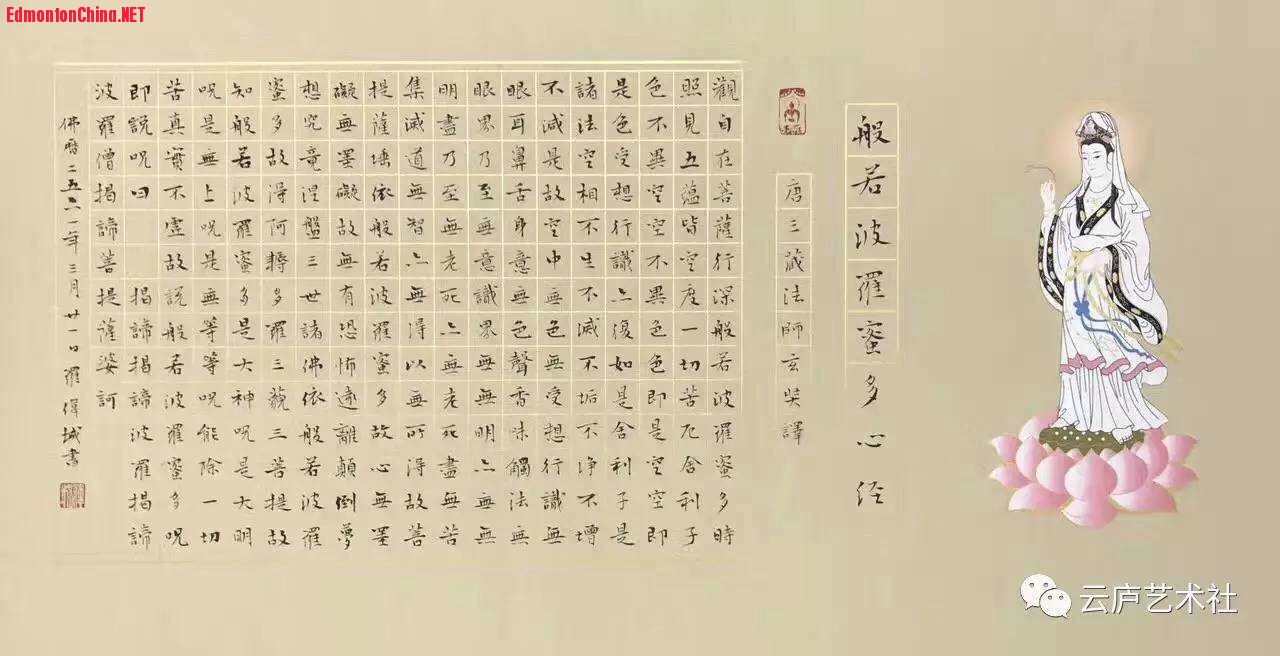 EdmontonChina.NET
般若波羅蜜多心经
唐三藏法師玄奘譯
觀自在菩薩行深般若波羅蜜多時
照見五蕴皆空度一切苦厄舍利子
色不異空空不異色色即是空空即
是色受想行識亦復如是舍利子是
諸法空相不生不滅不垢不净不增
不減是故空中無色無受想行識無
眼耳鼻舌身意無色聲香味觸法無
眼界乃至無意識界無無明亦無無
明盡乃至無老死亦無老死盡無苦
集滅道無智亦無得以無所得故菩
提薩埵依般若波羅蜜多故心無罣
礙無罣礙故無有恐怖遠離顛倒夢
想究竟涅盤三世諸佛依般若波羅
蜜多故得阿耨多羅三藐三菩提故
知般若波羅蜜多是大神呪是大明
呪是無上呪是無等等呪能除一切
苦真實不虛故說般若波羅蜜多呪
即說呪曰 揭諦揭諦波羅揭諦
波羅僧揭諦菩提薩婆訶
佛曆二五六一年三月廿一日羅偉城書
云庐艺术社